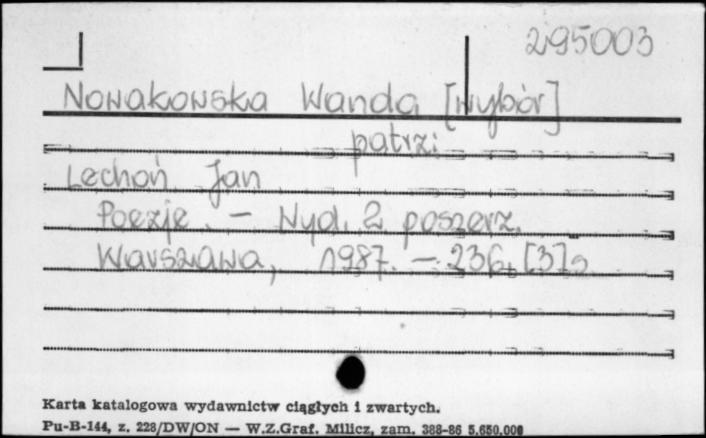 295003
Nowakowska Wanda [wybór]
patrz:
Lechoń Jan
Poezje. – Wyd. 2 poszerz.
Warszawa, 1987. – 236, [3] s.
Karta katalogowa wydawnictw ciągłych i zwartych.
Pu-B-144, z. 228/DW/ON — W.Z.Graf. Milicz, zam. 388-86 5.650.000